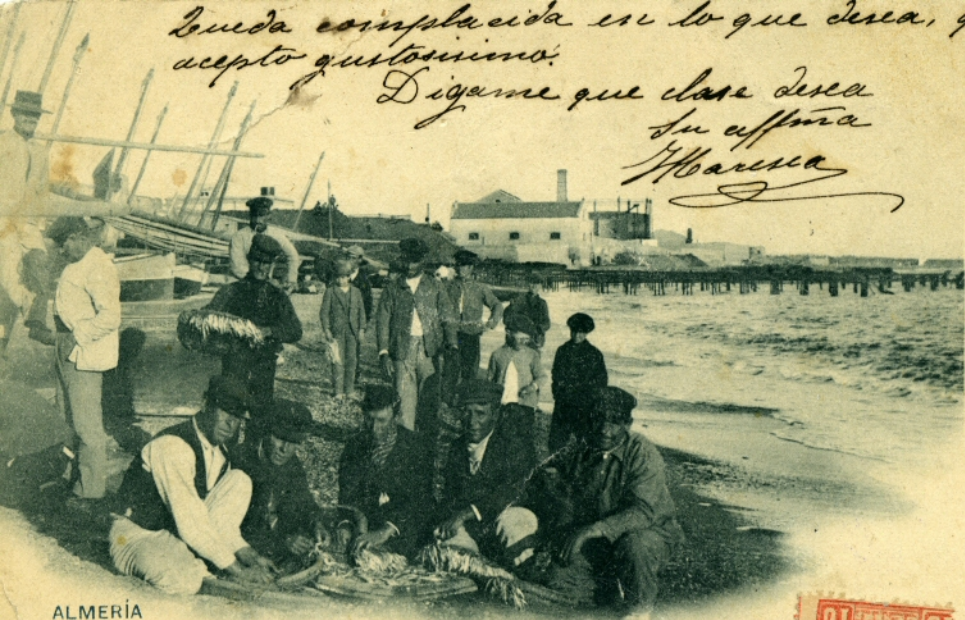 Queda complacida en lo que desea, q
acepto gustosisimo.
Digame que clase desea
Su affma
ALMERÍA
10